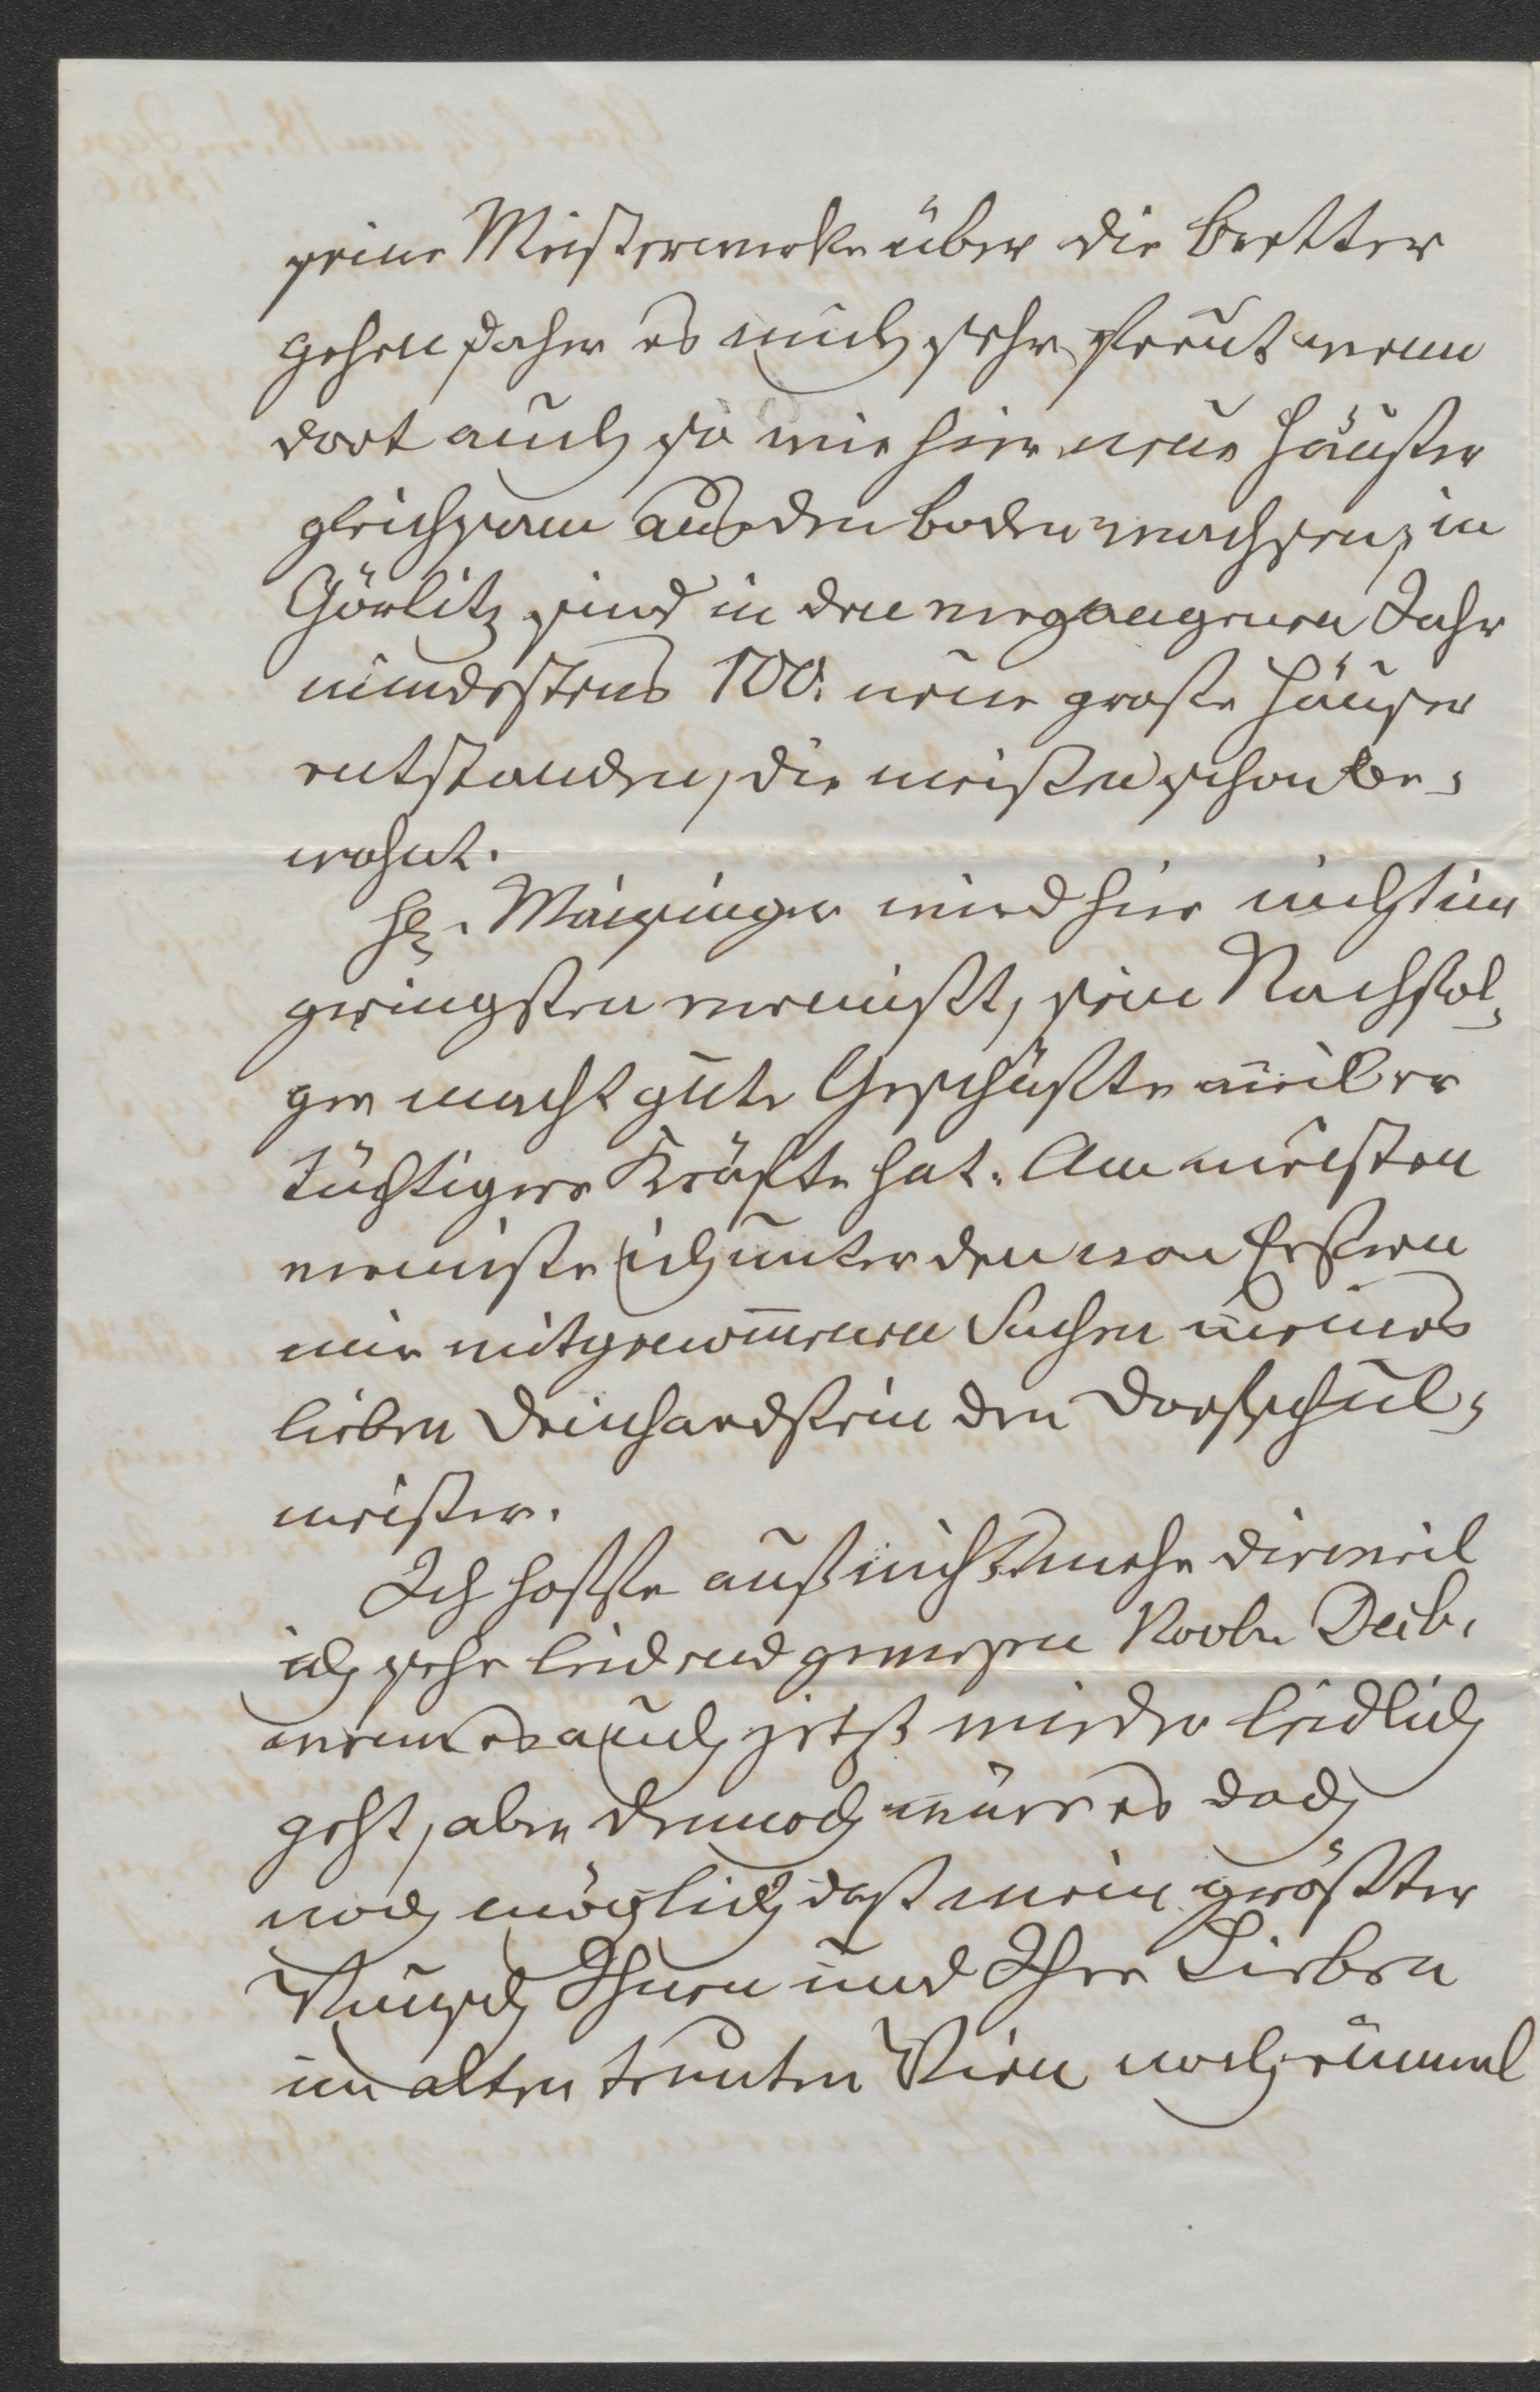 seine Meisterwerke über die Bretter
gehen daher es mich sehr freut wenn
dort auch so wie hier neue Häußer
gleichsam aus den Boden wachsen, in
Görlitz sind in den vergangenen Jahr
mindestens 100. neue große Häuser
entstanden, die meisten schon be-
wohnt.
H. Meisinger wird hier nicht im
geringsten vermißt, sein Nachfol-
ger macht gute Geschäfte weil er
tüchtigere Kräfte hat. Am meisten
vermiße ich unter den von Erstern
mir mitgenom̅enen Sachen meines
lieben Deinhardstein den Dorfschul-
meister.
Ich hoffte auf nichts mehr dieweil
ich sehr leidend gewesen
wenn es auch jetzt wieder leidlich
geht, aber dennoch wäre es doch
noch möglich daß mein größter
Wunsch Ihnen und Ihre Lieben
im alten trauten Wien noch einmal